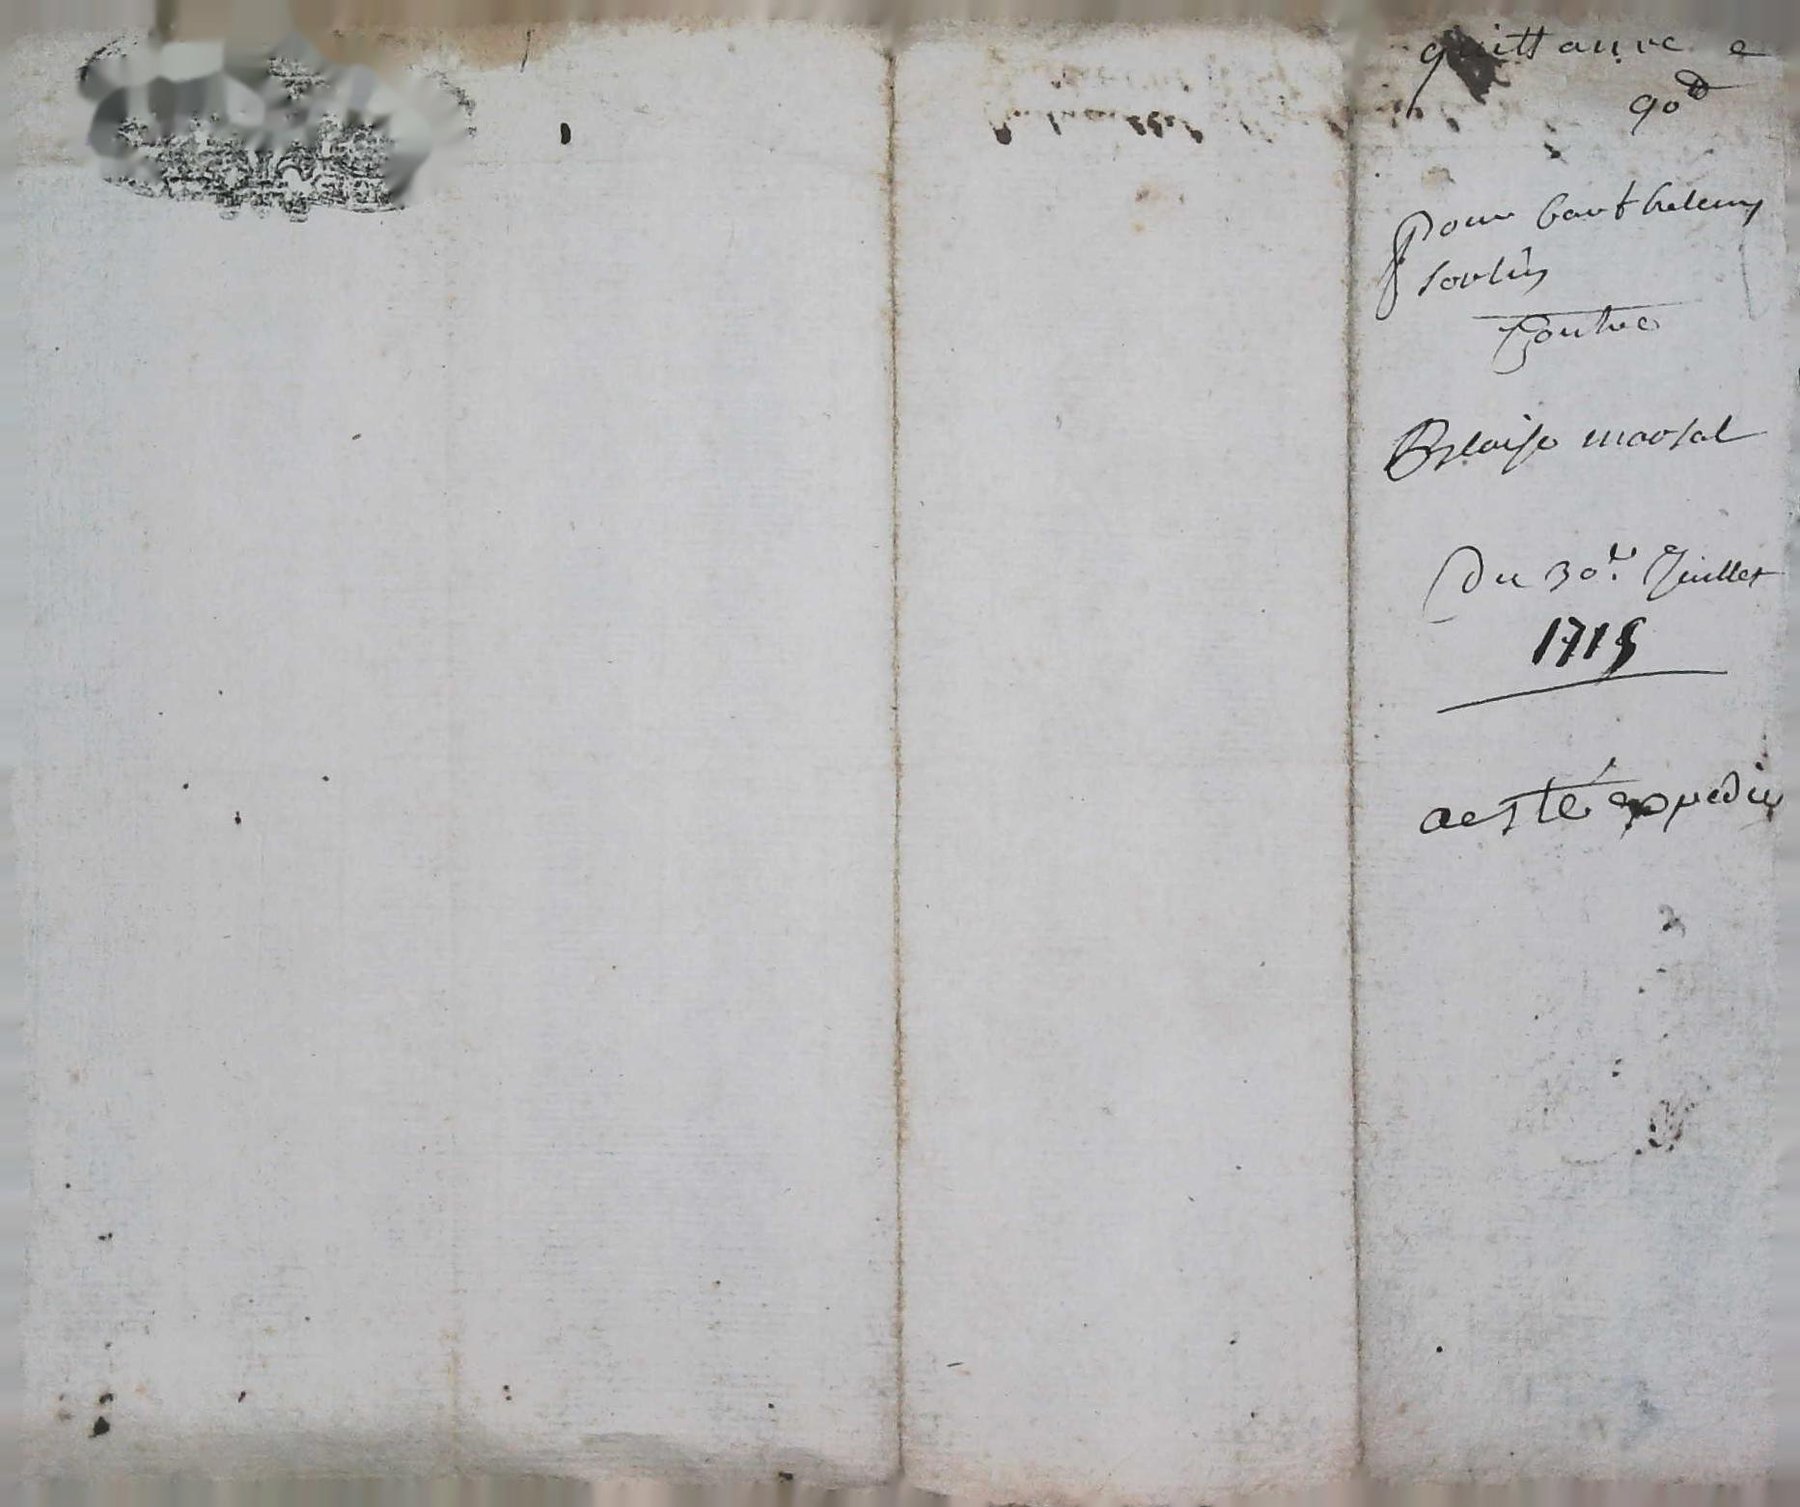 quittance
90tt
Pour barthelemy
soulis
Contre
Blaise marsal
Du 30e. Juillet
1715
a esté expedie